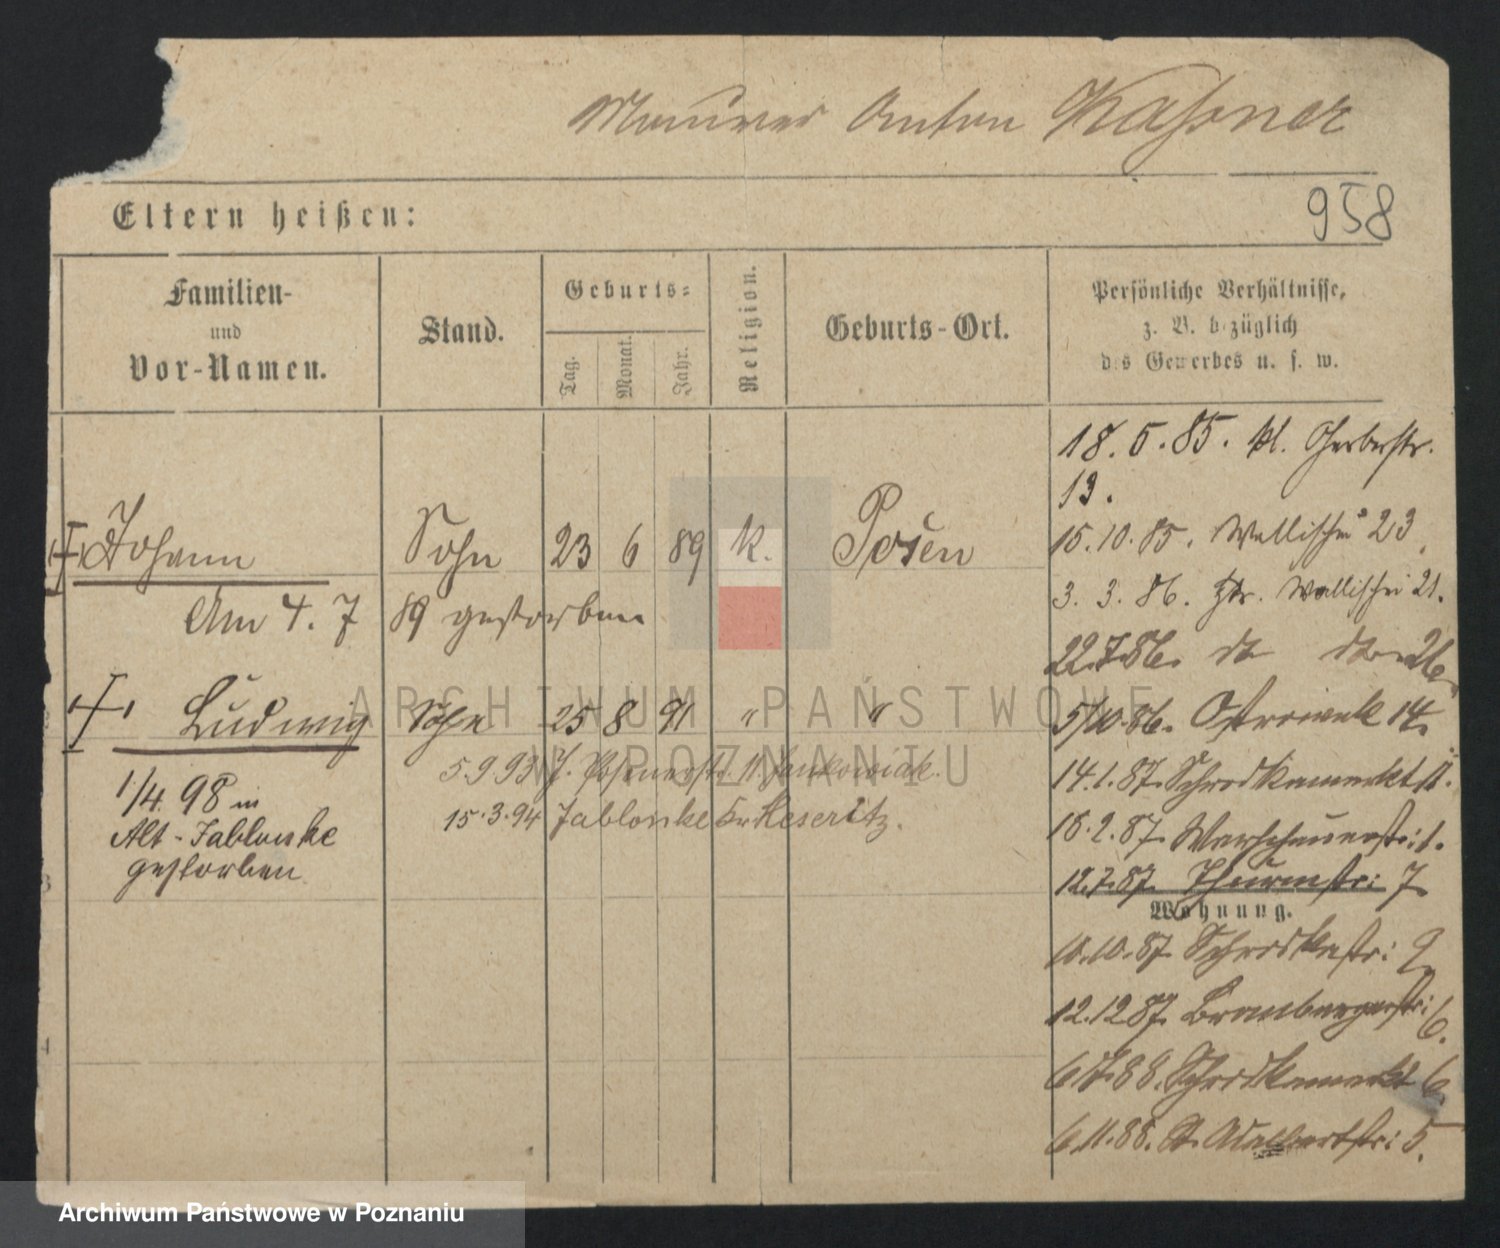 Maurer Anton Kaßner
Eltern heißen:
958
Familien-
und
Vor-Namen.
Stand.
Geburts-
Tag.
Monat.
Jahr.
Religion.
Geburts-Ort.
Persönliche Verhältnisse,
z. B. bezüglich
des Gewerbes u. s. w.
18.5.85. kl. Gerberstr.
13.
15.10.85. Wallischei 23.
3.3.86. Wallischei 21.
22.7.86. dto
5/10.86. Ostrowek 14.
14.1.87. Schrodkamarkt 11.
18.2.87. Warschauerstr: 1.
12.7.87. Thurmstr: 7
Wohnung.
10.10.87. Schrodkastr: 9
12.12.87. Brombergerstr: 6.
6.7.88. Schrodkamarkt 6.
6.11.88. St. Adalbertstr: 5.
Johann Sohn 23 6 89 k. Posen
Am 4. 7 89 gestorben
Ludwig Sohn 25 8 91 " "
5.9.93 J. Posenerstr. 11. Jankowiak.
15.3.94 Jablonke Kr. Meseritz.
1/4 98 in
Alt-Jablonke
gestorben
ARCHIWUM PAŃSTWOWE
W POZNANIU
Archiwum Państwowe w Poznaniu